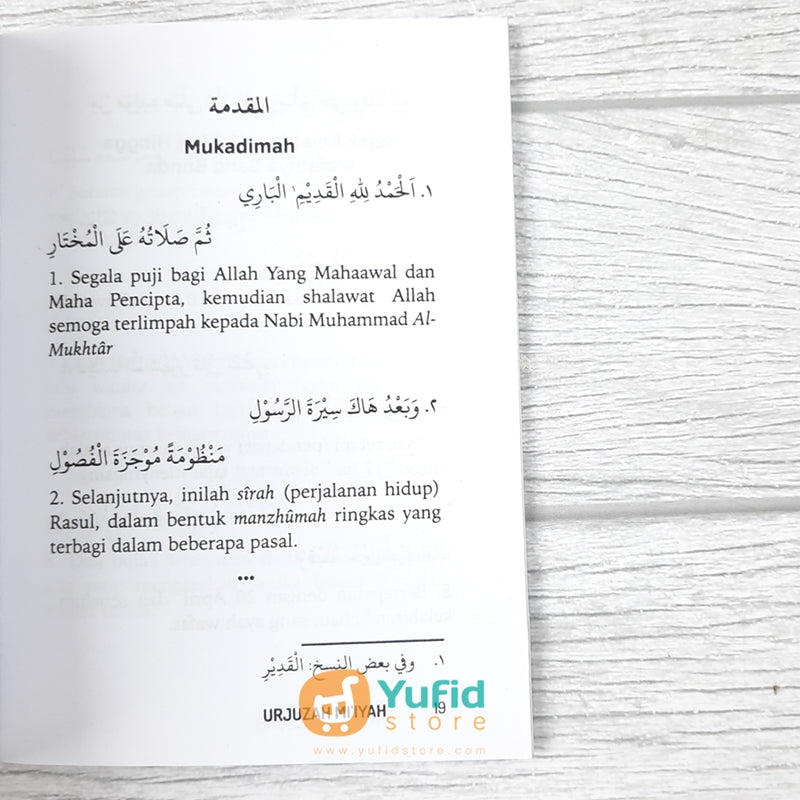 المقدمة
Mukadimah
١. اَلْحَمْدُ لِلهِ الْقَدِيْمِ١ الْبَارِي
ثُمَّ صَلَاتُهُ عَلَى الْمُخْتَارِ
1. Segala puji bagi Allah Yang Mahaawal dan
Maha Pencipta, kemudian shalawat Allah
semoga terlimpah kepada Nabi Muhammad Al-
Mukhtâr
٢. وَبَعْدُ هَاكَ سِيْرَةَ الرَّسُوْلِ
مَنْظُوْمَةً مُوْجَزَةَ الْفُصُوْلِ
2. Selanjutnya, inilah sîrah (perjalanan hidup)
Rasul, dalam bentuk manzhûmah ringkas yang
terbagi dalam beberapa pasal.
...
١. وفي بعض النسخ: الْقَدِيْرِ
URJUZAH MI'IYAH 19
Yufid
store
www.yufidstore.com